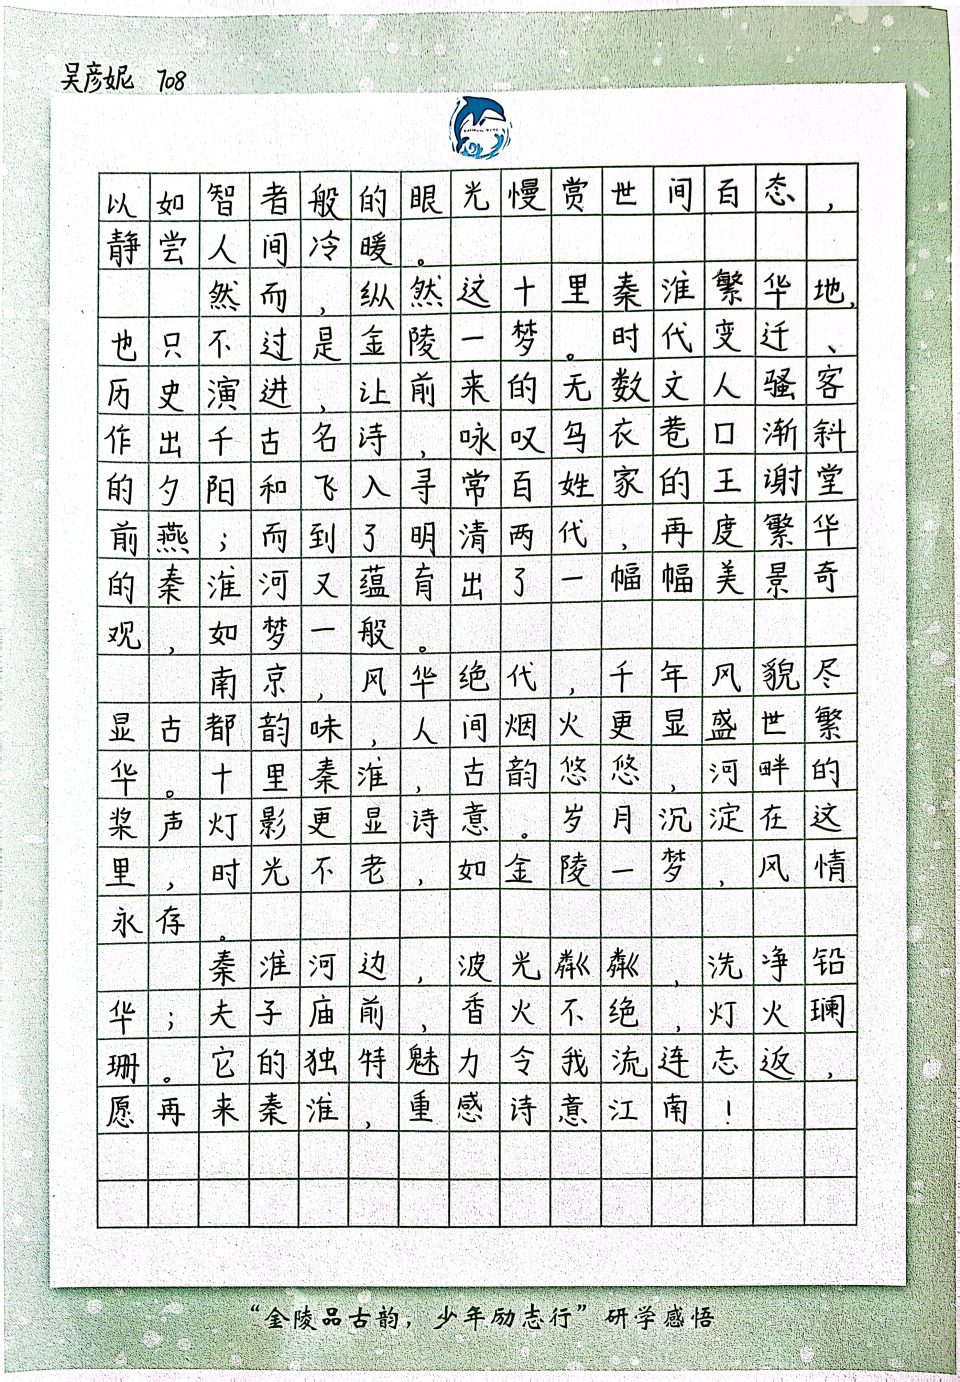 吴彦妮 708
以如智者般的眼光慢赏世间百态，
静尝人间冷暖。
然而，纵然这十里秦淮繁华地，
也只不过是金陵一梦。时代变迁、
历史演进，让前来的无数文人骚客
作出千古名诗，咏叹乌衣巷口渐斜
的夕阳和飞入寻常百姓家的王谢堂
前燕；而到了明清两代，再度繁华
的秦淮河又蕴育出了一幅幅美景奇
观，如梦一般。
南京，风华绝代，千年风貌尽
显古都韵味，人间烟火更显盛世繁
华。十里秦淮，古韵悠悠，河畔的
桨声灯影更显诗意。岁月沉淀在这
里，时光不老，如金陵一梦，风情
永存。
秦淮河边，波光粼粼，洗净铅
华；夫子庙前，香火不绝，灯火斓
珊。它的独特魅力令我流连志返，
愿再来秦淮，重感诗意江南！
“金陵品古韵，少年励志行”研学感悟